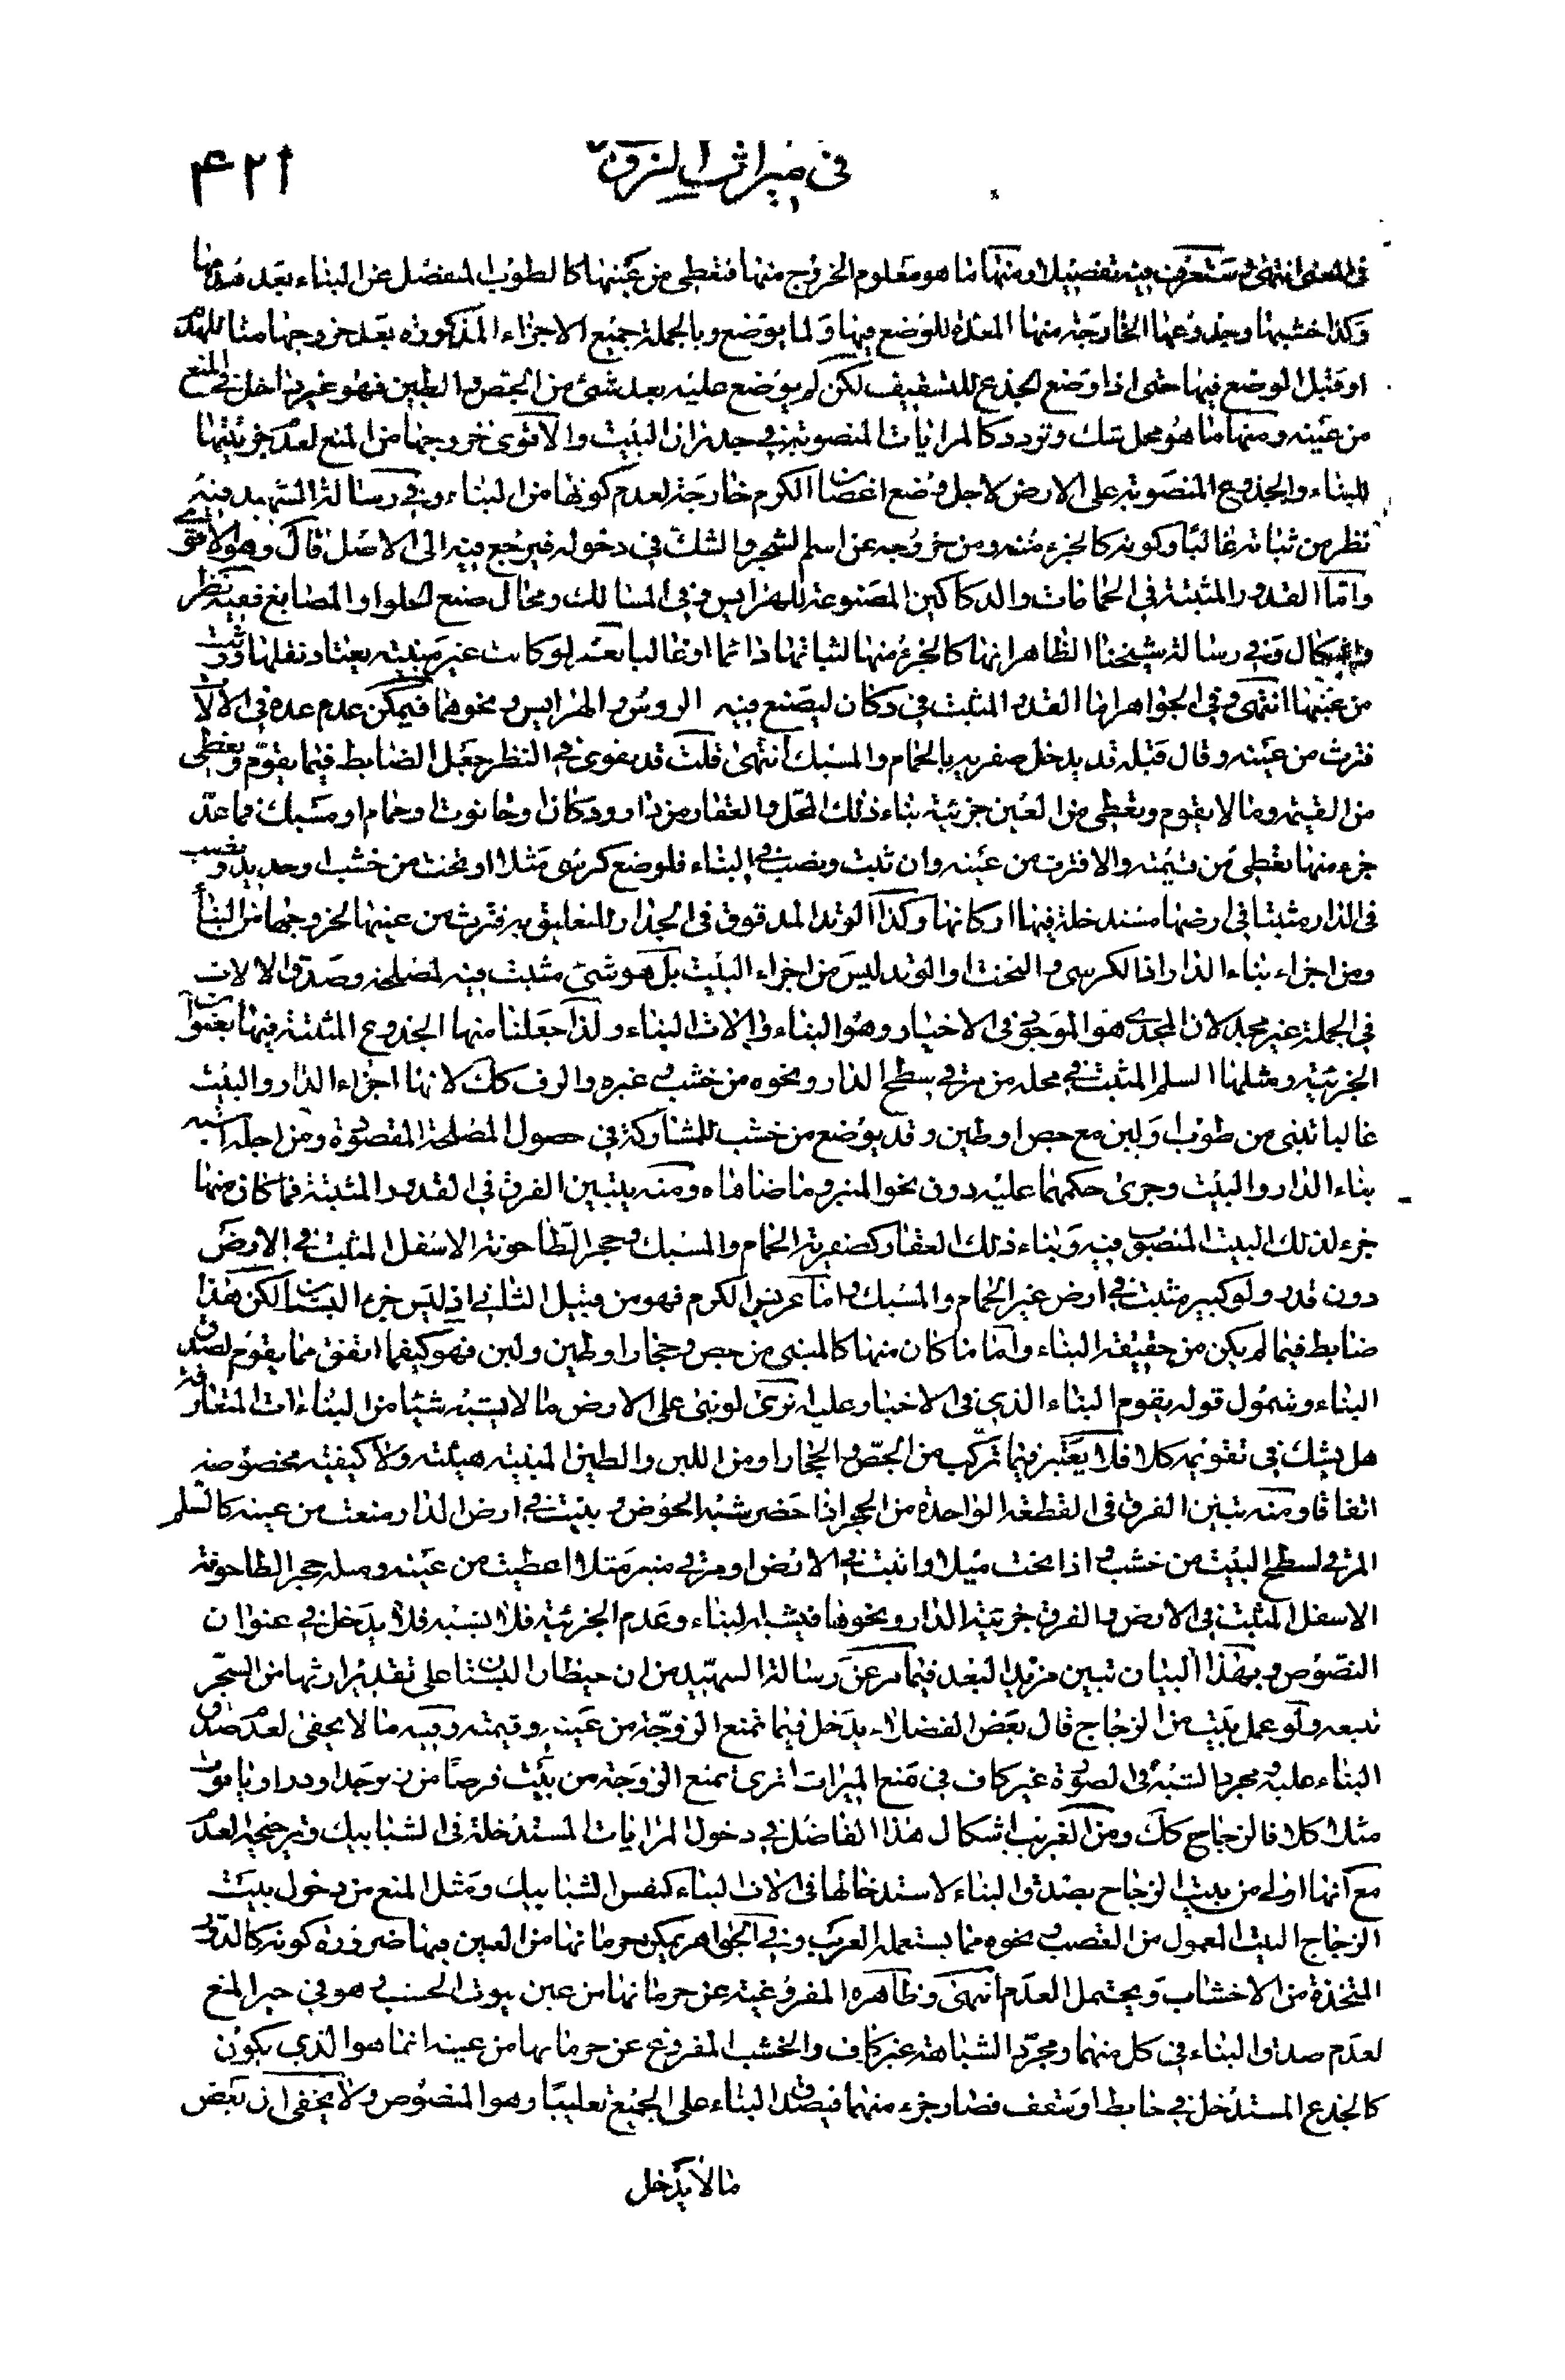 في ميراث الزوجة ٤٢١
في المعنى انتهى وستعرف فيه تفصيلا ومنها ما هو معلوم الخروج منها فتعطى من عينها كالطوب المنفصل عن البناء بعد هدمها
وكذا خشبها وجذوعها الخارجة منها المعدة للوضع فيها ولما يوضع وبالجملة جميع الاجزاء المذكورة بعد خروجها منا للهدم
او قبل الوضع فيها حتى اذا وضع الجذع للتسقيف لكن لم يوضع عليه بعد شئ من الجص والطين فهو غير داخل في المنع
من عينه ومنها ما هو محل شك وتردد كالمرايات المنصوبة في جدران البيت والاقوى خروجها من المنع لعدم جزئيتها
للبناء والجذوع المنصوبة على الارض لاجل وضع اغصان الكرم خارجة لعدم كونها من البناء وفي رسالة الشهيد فيه
نظر من ثباته غالبا وكونه كالجزء منه ومن خروجه عن اسم الشجر والشك في دخوله فيرجع فيه الى الاصل قال وهو الاقوى
واما القدور المثبتة في الحمامات والدكاكين المصنوعة للهرايس وفي المسالك ومحال صنع الحلوا والمصابغ ففيه نظر
واشكال وفي رسالة شيخنا الظاهر انها كالجزء منها لثباتها دائما او غالبا نعم لو كانت غير مبنية يعتاد نقلها ورثت
من عينها انتهى وفي الجواهر اما القدر المثبت في دكان ليصنع فيه الروس والهرايس ونحوهما فيمكن عدم عده في الالات
فترث من عينه وقال قبله قد يدخل صفرية بالحمام والمسبك انتهى قلت قد يقوى في النظر جعل الضابط فيما يقوم ويعطى
من القيمة وما لا يقوم ويعطى من العين جزئية بناء ذلك المحل والعقار من دار ودكان وحانوت وحمام ومسبك فما عد
جزء منها يعطى من قيمته والا فترث من عينه وان ثبت ونصب في البناء فلو وضع كرسى مثلا او تخت من خشب او حديد ونصب
في الدار مثبتا في ارضها مستدخلة فيها اركانها وكذا الوتد المدقوق في الجدار للتعليق به فترث من عينها لخروجها من البناء
ومن اجزاء بناء الدار اذا الكرسى والتخت او الوتد ليس من اجزاء البيت بل هو شئ مثبت فيه لمصلحة وصدق الالات
في الجملة غير مجد لان المجدى هو الموجود في الاخبار وهو البناء والات البناء ولذا جعلنا منها الجذوع المثبتة فيها بعنوان
الجزئية ومثلها السلم المثبت في محله من مرقى سطح الدار ونحوه من خشب وغيره والرف كك لانها اجزاء الدار والبيت
غالبا تبنى من طوب ولبن مع جص او طين وقد يوضع من خشب للمشاركة في حصول المصلحة المقصودة ومن اجله اشبه
بناء الدار والبيت وجرى حكمهما عليه دون نحو المنبر وما ضاهاه ومنه يتبين الفرق في القدور المثبتة فما كان منها
جزء لذلك البيت المنصوب فيه وبناء ذلك العقار كصفرية الحمام والمسبك وحجر الطاحونة الاسفل المثبت في الارض
دون قدر ولو كبير مثبت في ارض غير الحمام والمسبك واما عريش الكرم فهو من قبيل الثاني اذ ليس جزء البستان لكن هذا
ضابط فيما لم يكن من حقيقة البناء واما ما كان منها كالمبنى من جص وحجار او طين ولبن فهو كيفما اتفق مما يقوم لصدق
البناء وشمول قوله يقوم البناء الذي في الاخبار عليه ا ترى لو بنى على الارض ما لا يشبه شيئا من البناءات المتعارفة
هل يشك في تقويمه كلا فلا يعتبر فيما تركب من الجص والحجار او من اللبن والطين المبنية هيئة ولا كيفية مخصوصة
اتفاقا ومنه تبين الفرق في القطعة الواحدة من الحجر اذا حضر شبه الحوض وبنيت في ارض الدار منعت من عينه كالسلم
المرقى لسطح البيت من خشب اذا نحت ميلا واثبت في الارض او مرقى منبر مثلا اعطيت من عينه ومثله حجر الطاحونة
الاسفل المثبت في الارض والفرق جزئية الدار ونحوها فيشبه البناء وعدم الجزئية فلا يشبه فلا يدخل في عنوان
النصوص وبهذا البيان تبين مزيد البعد فيما مر عن رسالة الشهيد من ان حيطان البستان على تقدير ارثها من الشجر
تتبعه ولو عمل بيت من الزجاج قال بعض الفضلاء يدخل فيما تمنع الزوجة من عينه وقيمته وفيه ما لا يخفى لعدم صدق
البناء عليه ومجرد الشبه في الصورة غير كاف في منع الميراث اترى تمنع الزوجة من بيت فرضا من زبرجد او در او ياقوت
مثلا كلا فالزجاج كك ومن الغريب اشكال هذا الفاضل في دخول المرايات المستدخلة في الشبابيك وترجيحه لعدم
مع انها اولى من بيت الزجاج بصدق البناء لاستدخالها في الات البناء كنفس الشبابيك ومثل المنع من دخول بيت
الزجاج البيت المعمول من القصب ونحوه مما يستعمله العرب وفي الجواهر يمكن حرمانها من العين فيها ضرورة كونه كالدور
المتخذة من الاخشاب ويحتمل العدم انتهى وظاهره المفروغية عن حرمانها من عين بيوت الخشب وهو في حيز المنع
لعدم صدق البناء في كل منهما ومجرد الشباهة غير كاف والخشب المفروغ عن حرمانها من عينه انما هو الذي يكون
كالجذع المستدخل في حايط او سقف فصار جزء منهما فيصدق البناء على الجميع تغليبا وهو المنصوص ولا يخفى ان بعض
ما لا يدخل